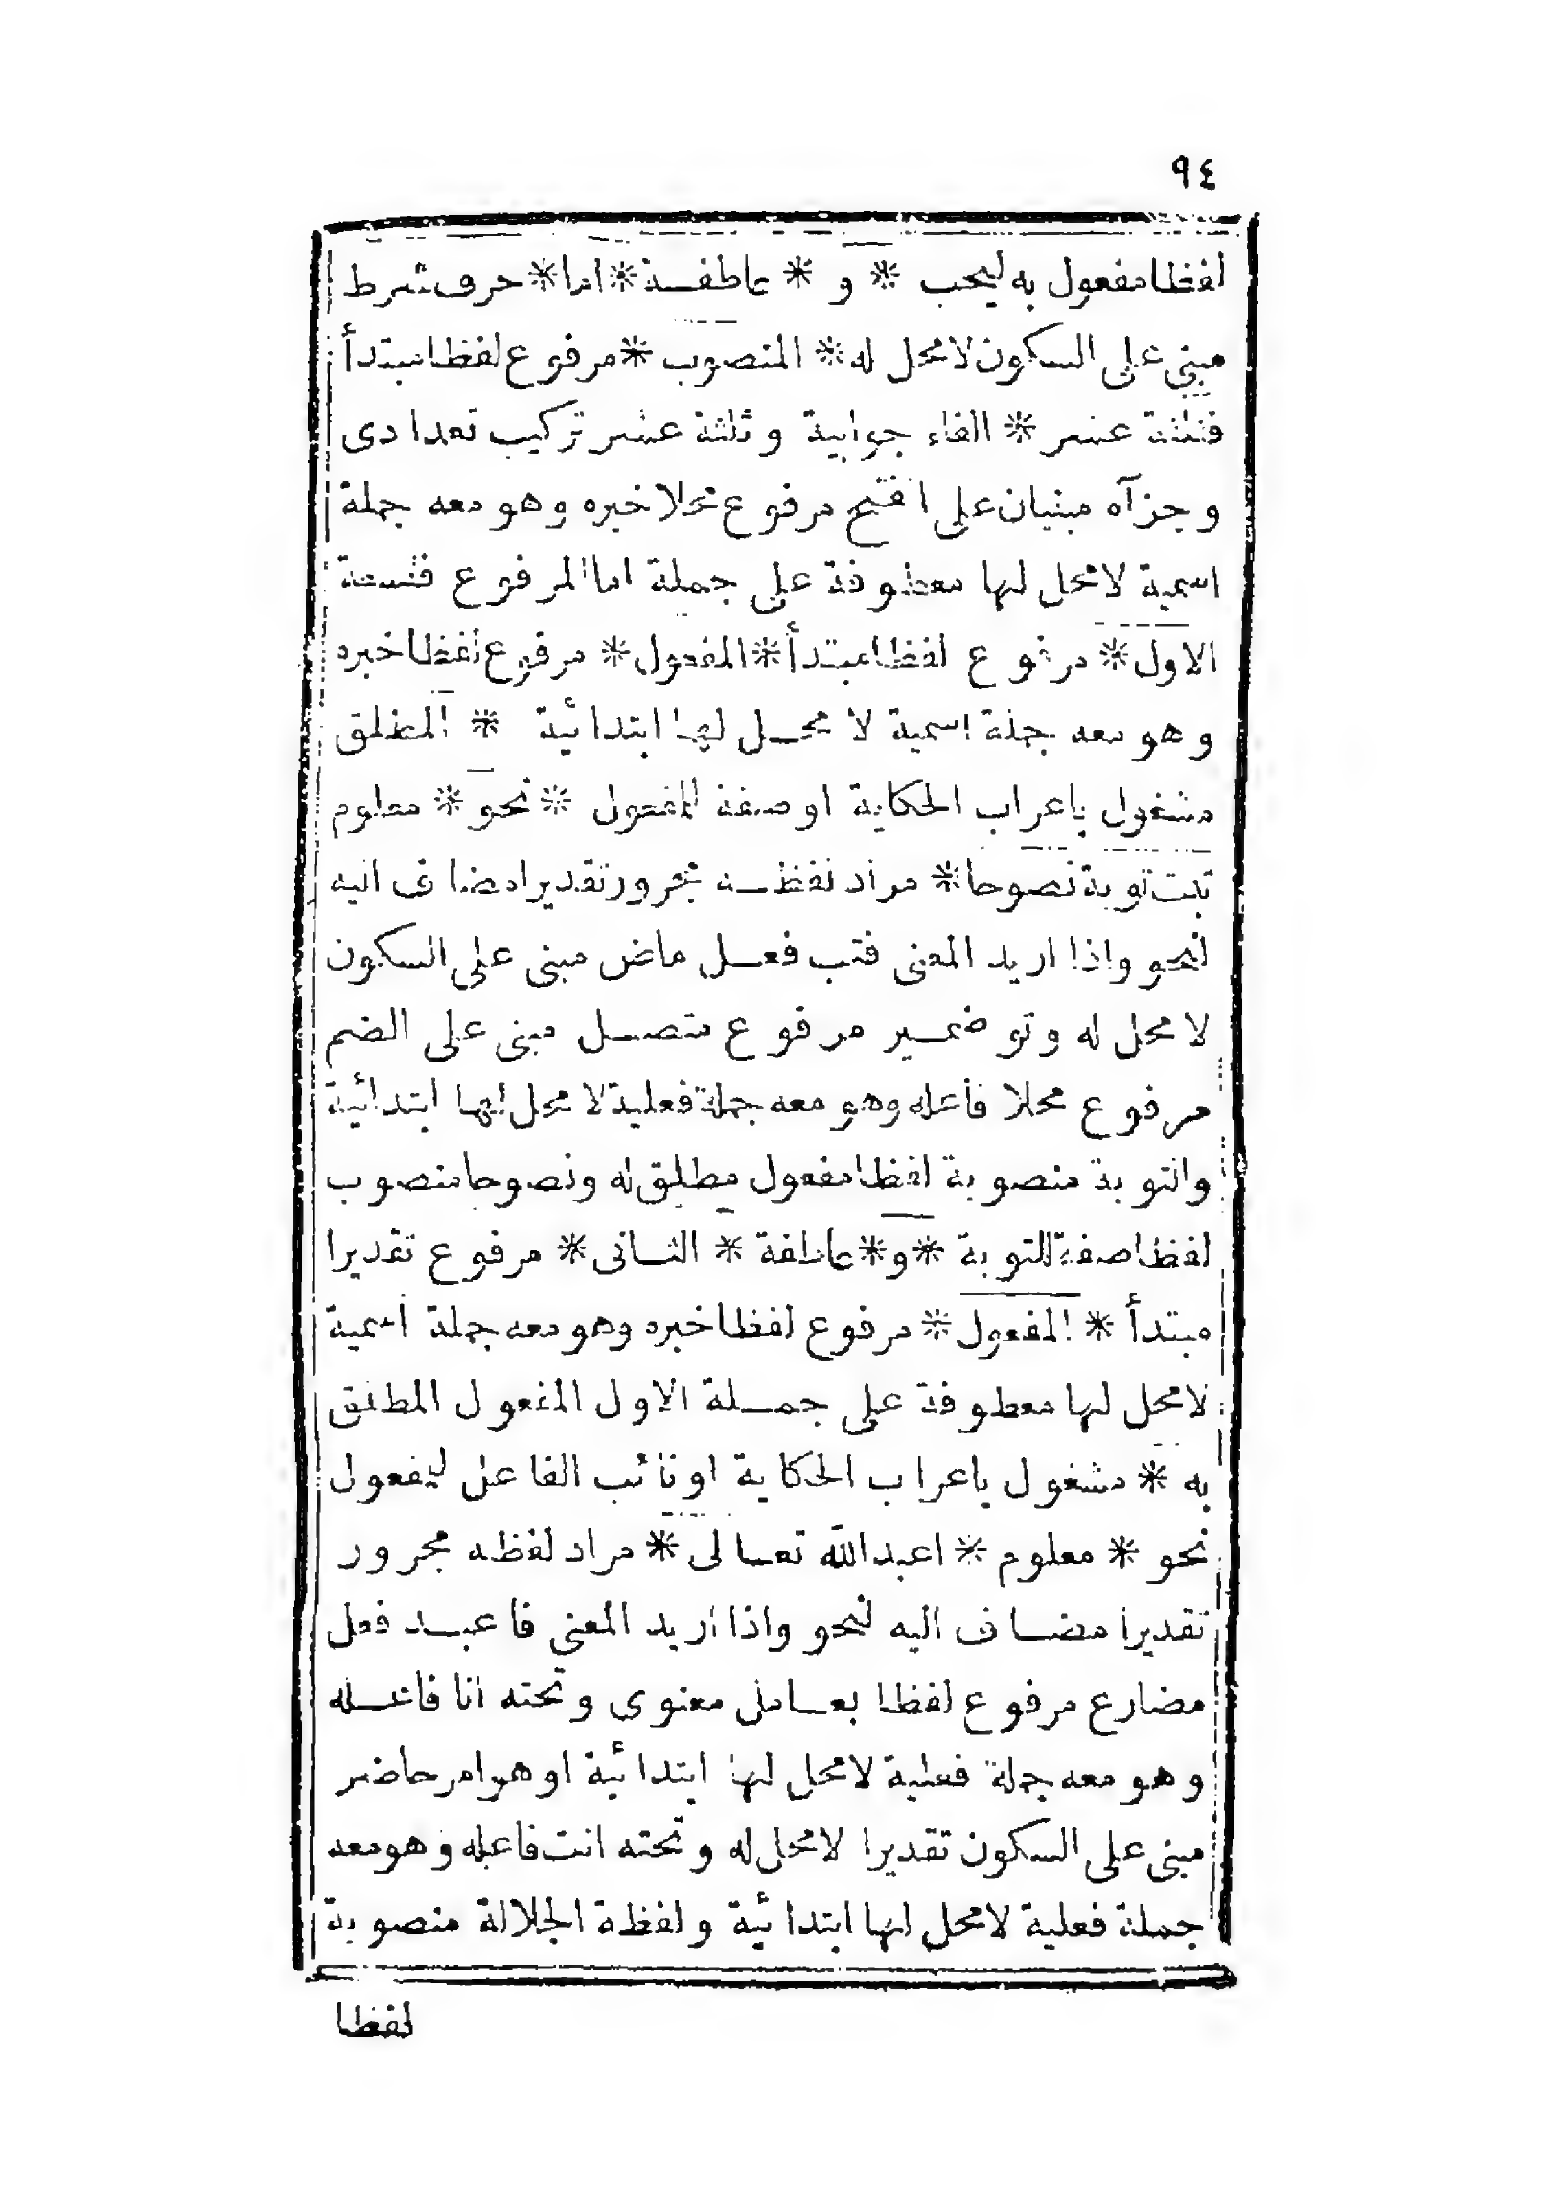 ٩٤
لفظا مفعول به ليجب * و * عاطفة * اما * حرف شرط
مبنى على السكون لا محل له * المنصوب * مرفوع لفظا مبتدأ
فثلثة عشر * الفاء جوابية وثلثة عشر تركيب تعدادى
وجزآه مبنيان على الفتح مرفوع محلا خبره وهو معه جملة
اسمية لا محل لها معطوفة على جملة اما المرفوع فتسعة
الاول * مرفوع لفظا مبتدأ * المفعول * مرفوع لفظا خبره
وهو معه جملة اسمية لا محل لها ابتدائية * المطلق
مشغول باعراب الحكاية او صفة المفعول * نحو * معلوم
تبت توبة نصوحا * مراد لفظه مجرور تقديرا مضاف اليه
لنحو واذا اريد المعنى فتب فعل ماض مبنى على السكون
لا محل له وتو ضمير مرفوع متصل مبنى على الضم
مرفوع محلا فاعله وهو معه جملة فعلية لا محل لها ابتدائية
والتوبة منصوبة لفظا مفعول مطلق له ونصوحا منصوب
لفظا صفة التوبة * و * عاطفة * الثانى * مرفوع تقديرا
مبتدأ * المفعول * مرفوع لفظا خبره وهو معه جملة اسمية
لا محل لها معطوفة على جملة الاول المفعول المطلق
به * مشغول باعراب الحكاية او نائب الفاعل لمفعول
نحو * معلوم * اعبد الله تعالى * مراد لفظه مجرور
تقديرا مضاف اليه لنحو واذا اريد المعنى فاعبد فعل
مضارع مرفوع لفظا بعامل معنوى وتحته انا فاعله
وهو معه جملة فعلية لا محل لها ابتدائية او هو امر حاضر
مبنى على السكون تقديرا لا محل له وتحته انت فاعله وهو معه
جملة فعلية لا محل لها ابتدائية ولفظة الجلالة منصوبة
لفظا